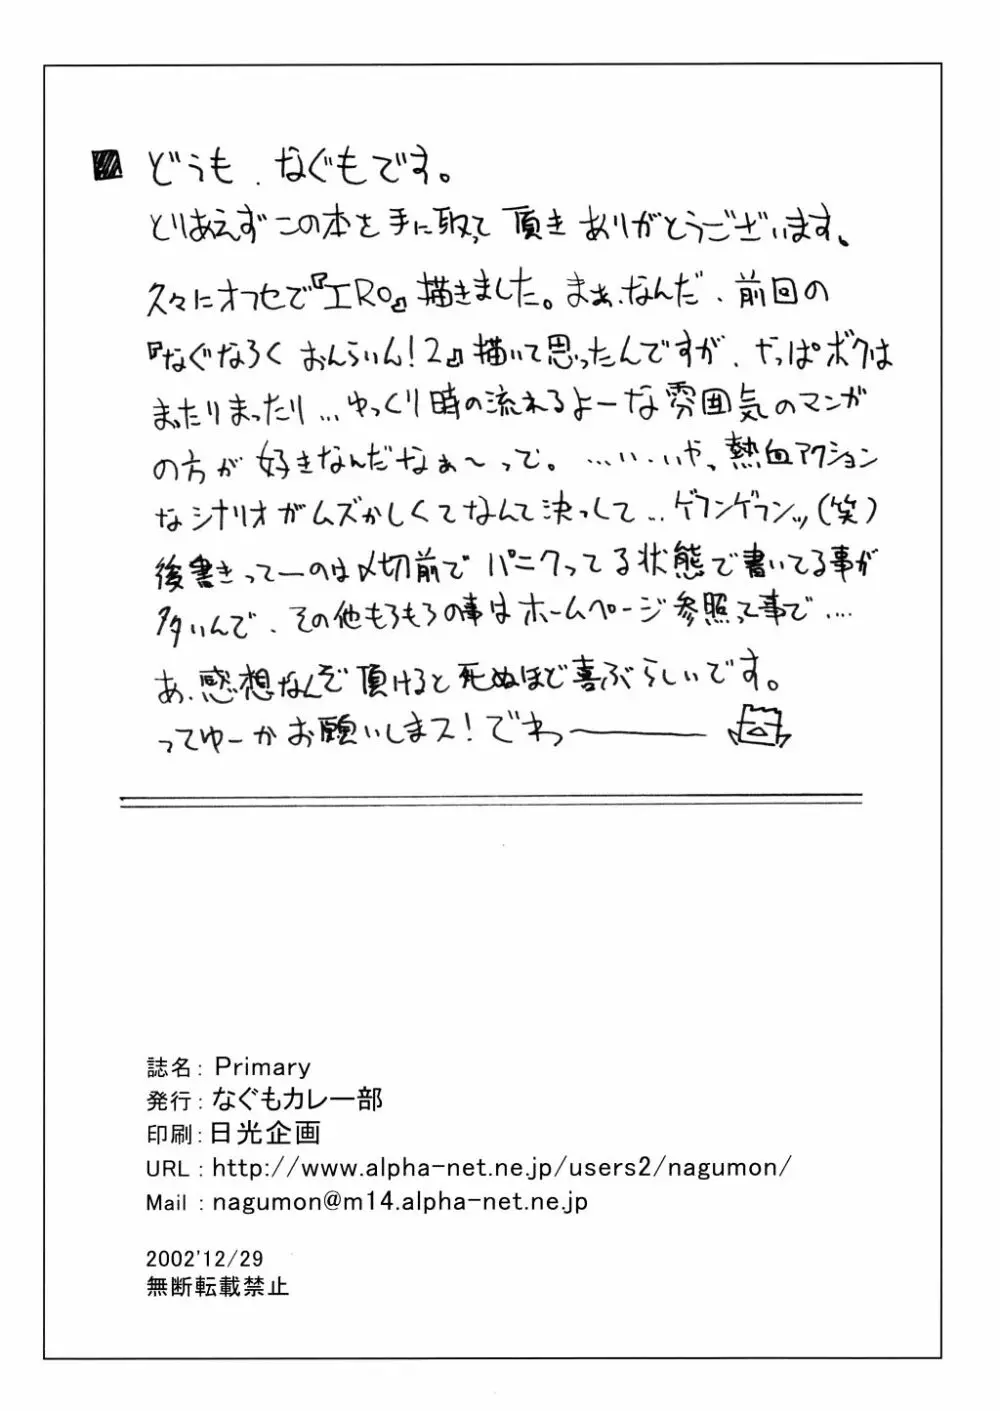 どうも、なぐもです。
とりあえずこの本を手に取って頂きありがとうございます。
久々にオフセで『エRO』描きました。まぁ、なんだ、前回の
『なぐなろく おんらいん!2』描いて思ったんですが、やっぱボクは
まったりまったり…ゆっくり時の流れるよーな雰囲気のマンガ
の方が好きなんだなぁ〜って。…い、いやっ熱血アクション
なシナリオがムズかしくてなんて決っして…ゲフンゲフンッ(笑)
後書きってーのは〆切前でパニクってる状態で書いてる事が
多いんで、その他もろもろの事はホームページ参照って事で….
あ、感想なんぞ頂けると死ぬほど喜ぶらしいです。
ってゆーかお願いしまス!でわっ―――
誌名: Primary
発行: なぐもカレー部
印刷: 日光企画
URL : http://www.alpha-net.ne.jp/users2/nagumon/
Mail : nagumon@m14.alpha-net.ne.jp
2002'12/29
無断転載禁止